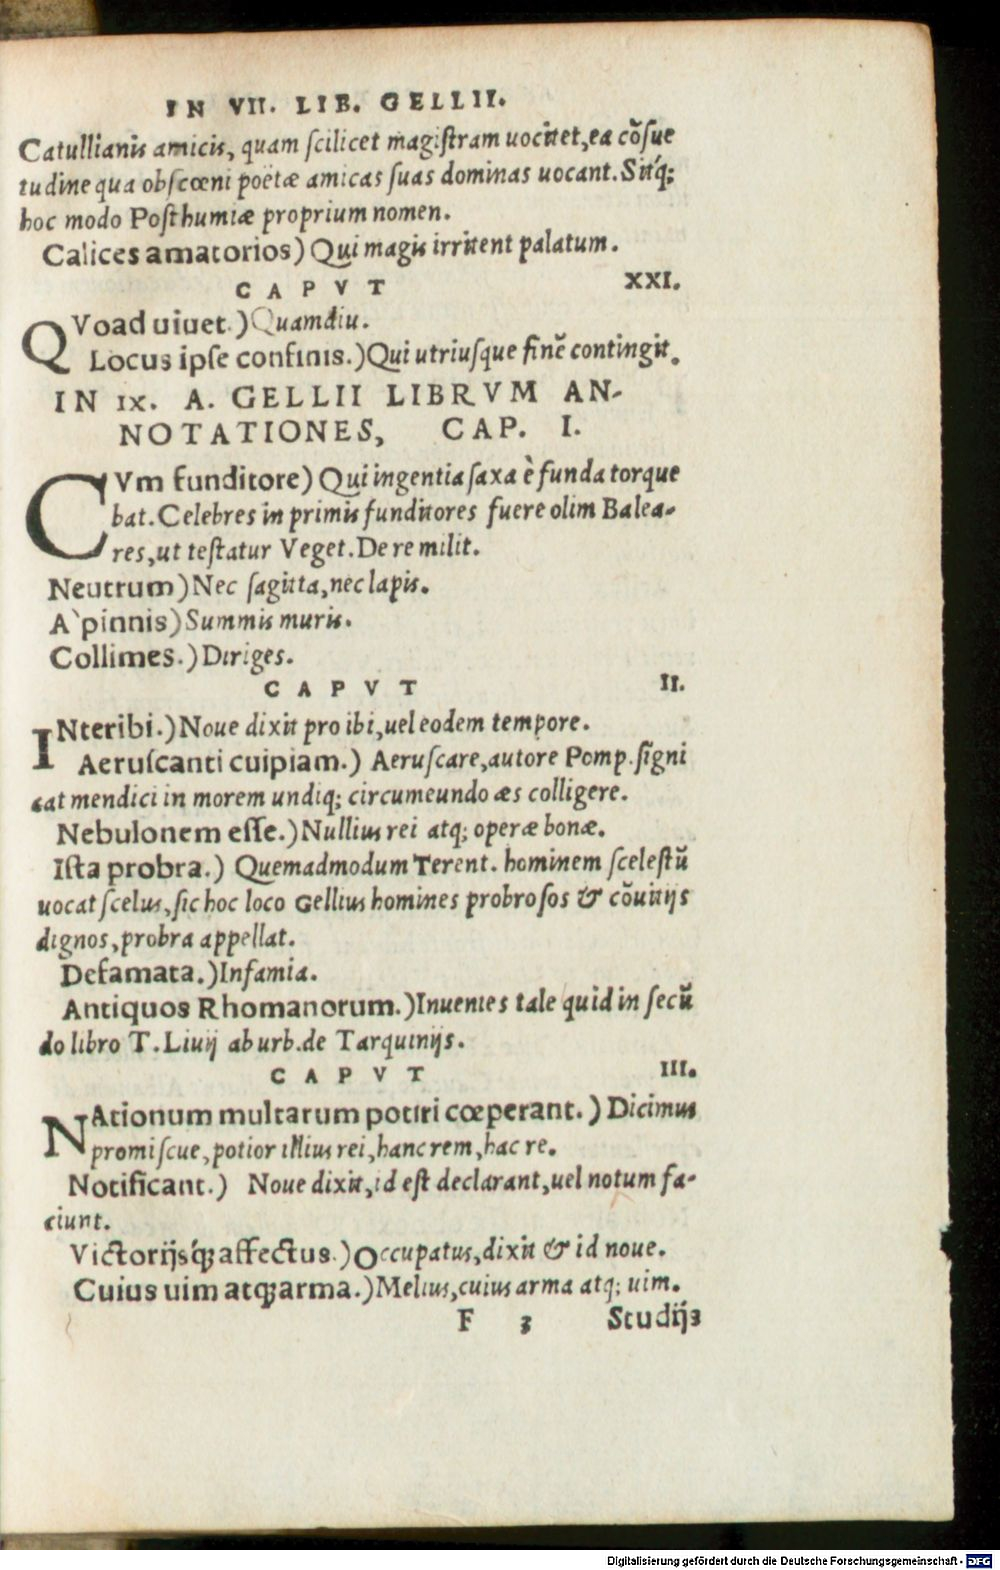 IN VII. LIB. GELLII.
Catullianis amicis, quam ſcilicet magiſtram uocitet, ea cõſue
tudine qua obſcœni poëtæ amicas ſuas dominas uocant. Sitq́;
hoc modo Poſthumiæ proprium nomen.
Calices amatorios) Qui magis irritent palatum.
CAPVT XXI.
QVoad uiuet.) Quamdiu.
Locus ipſe confinis.) Qui utriuſque finẽ contingit.
IN IX. A. GELLII LIBRVM AN-
NOTATIONES, CAP. I.
CVm funditore) Qui ingentia ſaxa è funda torque
bat. Celebres in primis funditores fuere olim Balea-
res, ut teſtatur Veget. De re milit.
Neutrum) Nec ſagitta, nec lapis.
A` pinnis) Summis muris.
Collimes.) Diriges.
CAPVT II.
INteribi.) Noue dixit pro ibi, uel eodem tempore.
Aeruſcanti cuipiam.) Aeruſcare, autore Pomp. ſigni
cat mendici in morem undiq; circumeundo æs colligere.
Nebulonem eſſe.) Nullius rei atq; operæ bonæ.
Iſta probra.) Quemadmodum Terent. hominem ſceleſtũ
uocat ſcelus, ſic hoc loco Gellius homines probroſos & cõuitijs
dignos, probra appellat.
Defamata.) Infamia.
Antiquos Rhomanorum.) Inuenies tale quid in ſecũ
do libro T. Liuij ab urb. de Tarquinijs.
CAPVT III.
NAtionum multarum potiri cœperant.) Dicimus
promiſcue, potior illius rei, hanc rem, hac re.
Notificant.) Noue dixit, id eſt declarant, uel notum fa-
ciunt.
Victorijsq́ꝫ affectus.) Occupatus, dixit & id noue.
Cuius uim atqꝫ arma.) Melius, cuius arma atq; uim.
F 3 Studijs
Digitalisierung gefördert durch die Deutsche Forschungsgemeinschaft - DFG